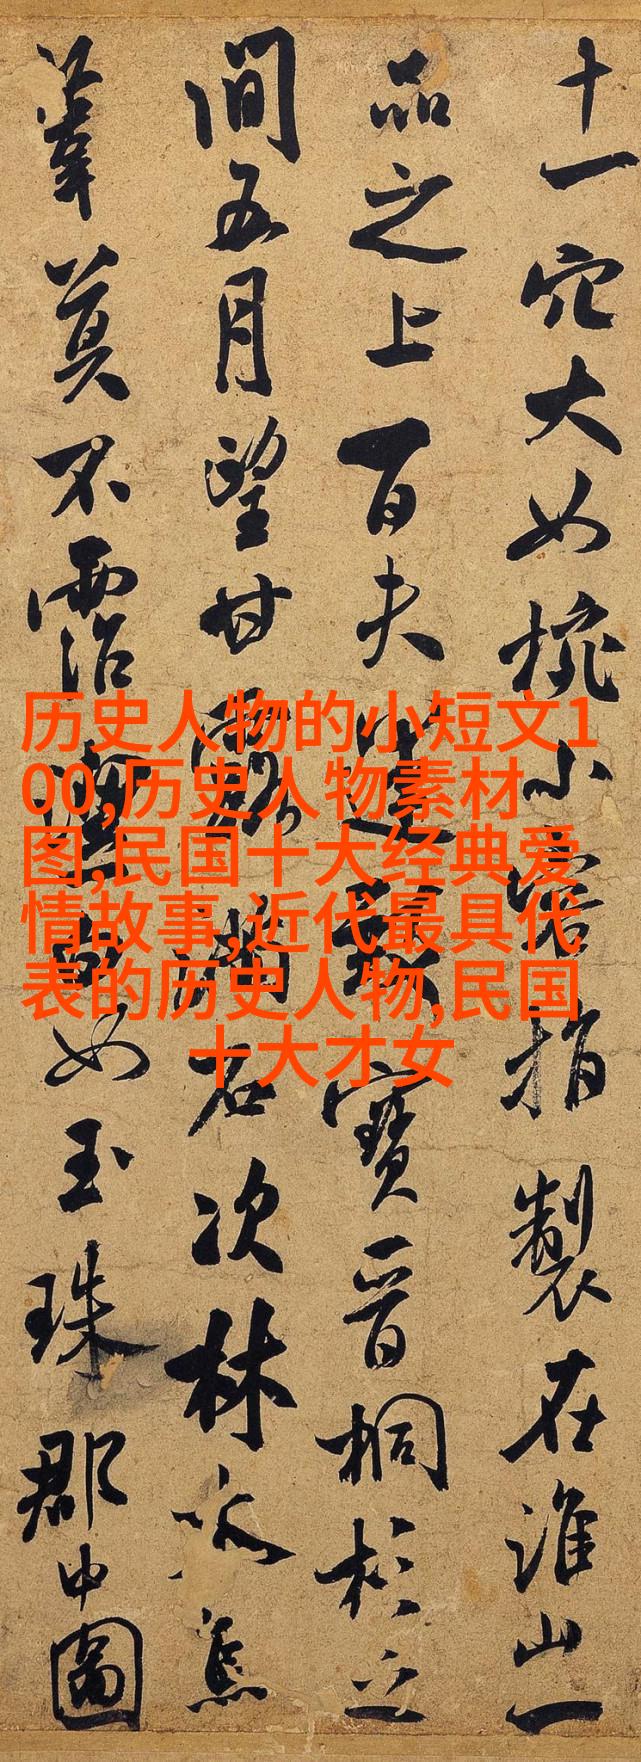 十一穴大如椀小容指製在淮山一
品之上百夫運致寶晉桐杉之
間五月望甘露滿石次林焦
葦莫不霑潔白如玉珠郡中圖
历史人物的小短文1
00,历史人物素材
图,民国十大经典爱
情故事,近代最具代
表的历史人物,民国
十大才女